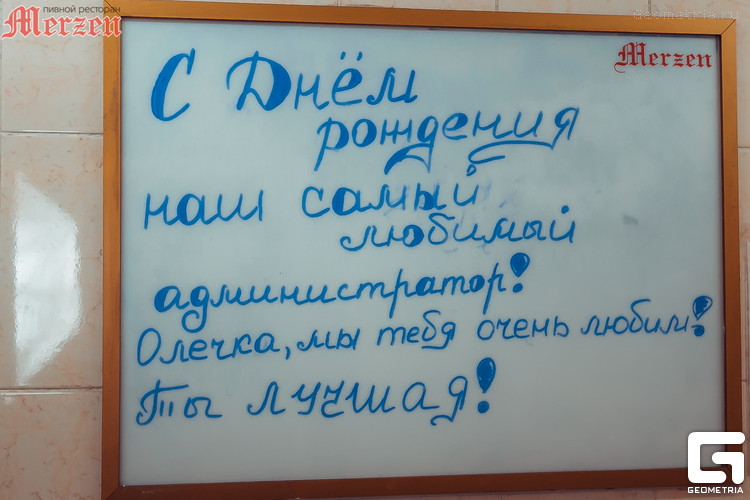 пивной ресторан
Merzen
Geometria.ru
Merzen
С Днём
рождения
наш самый
любимый
администратор!
Олечка, мы тебя очень любим!
Ты лучшая!
GEOMETRIA